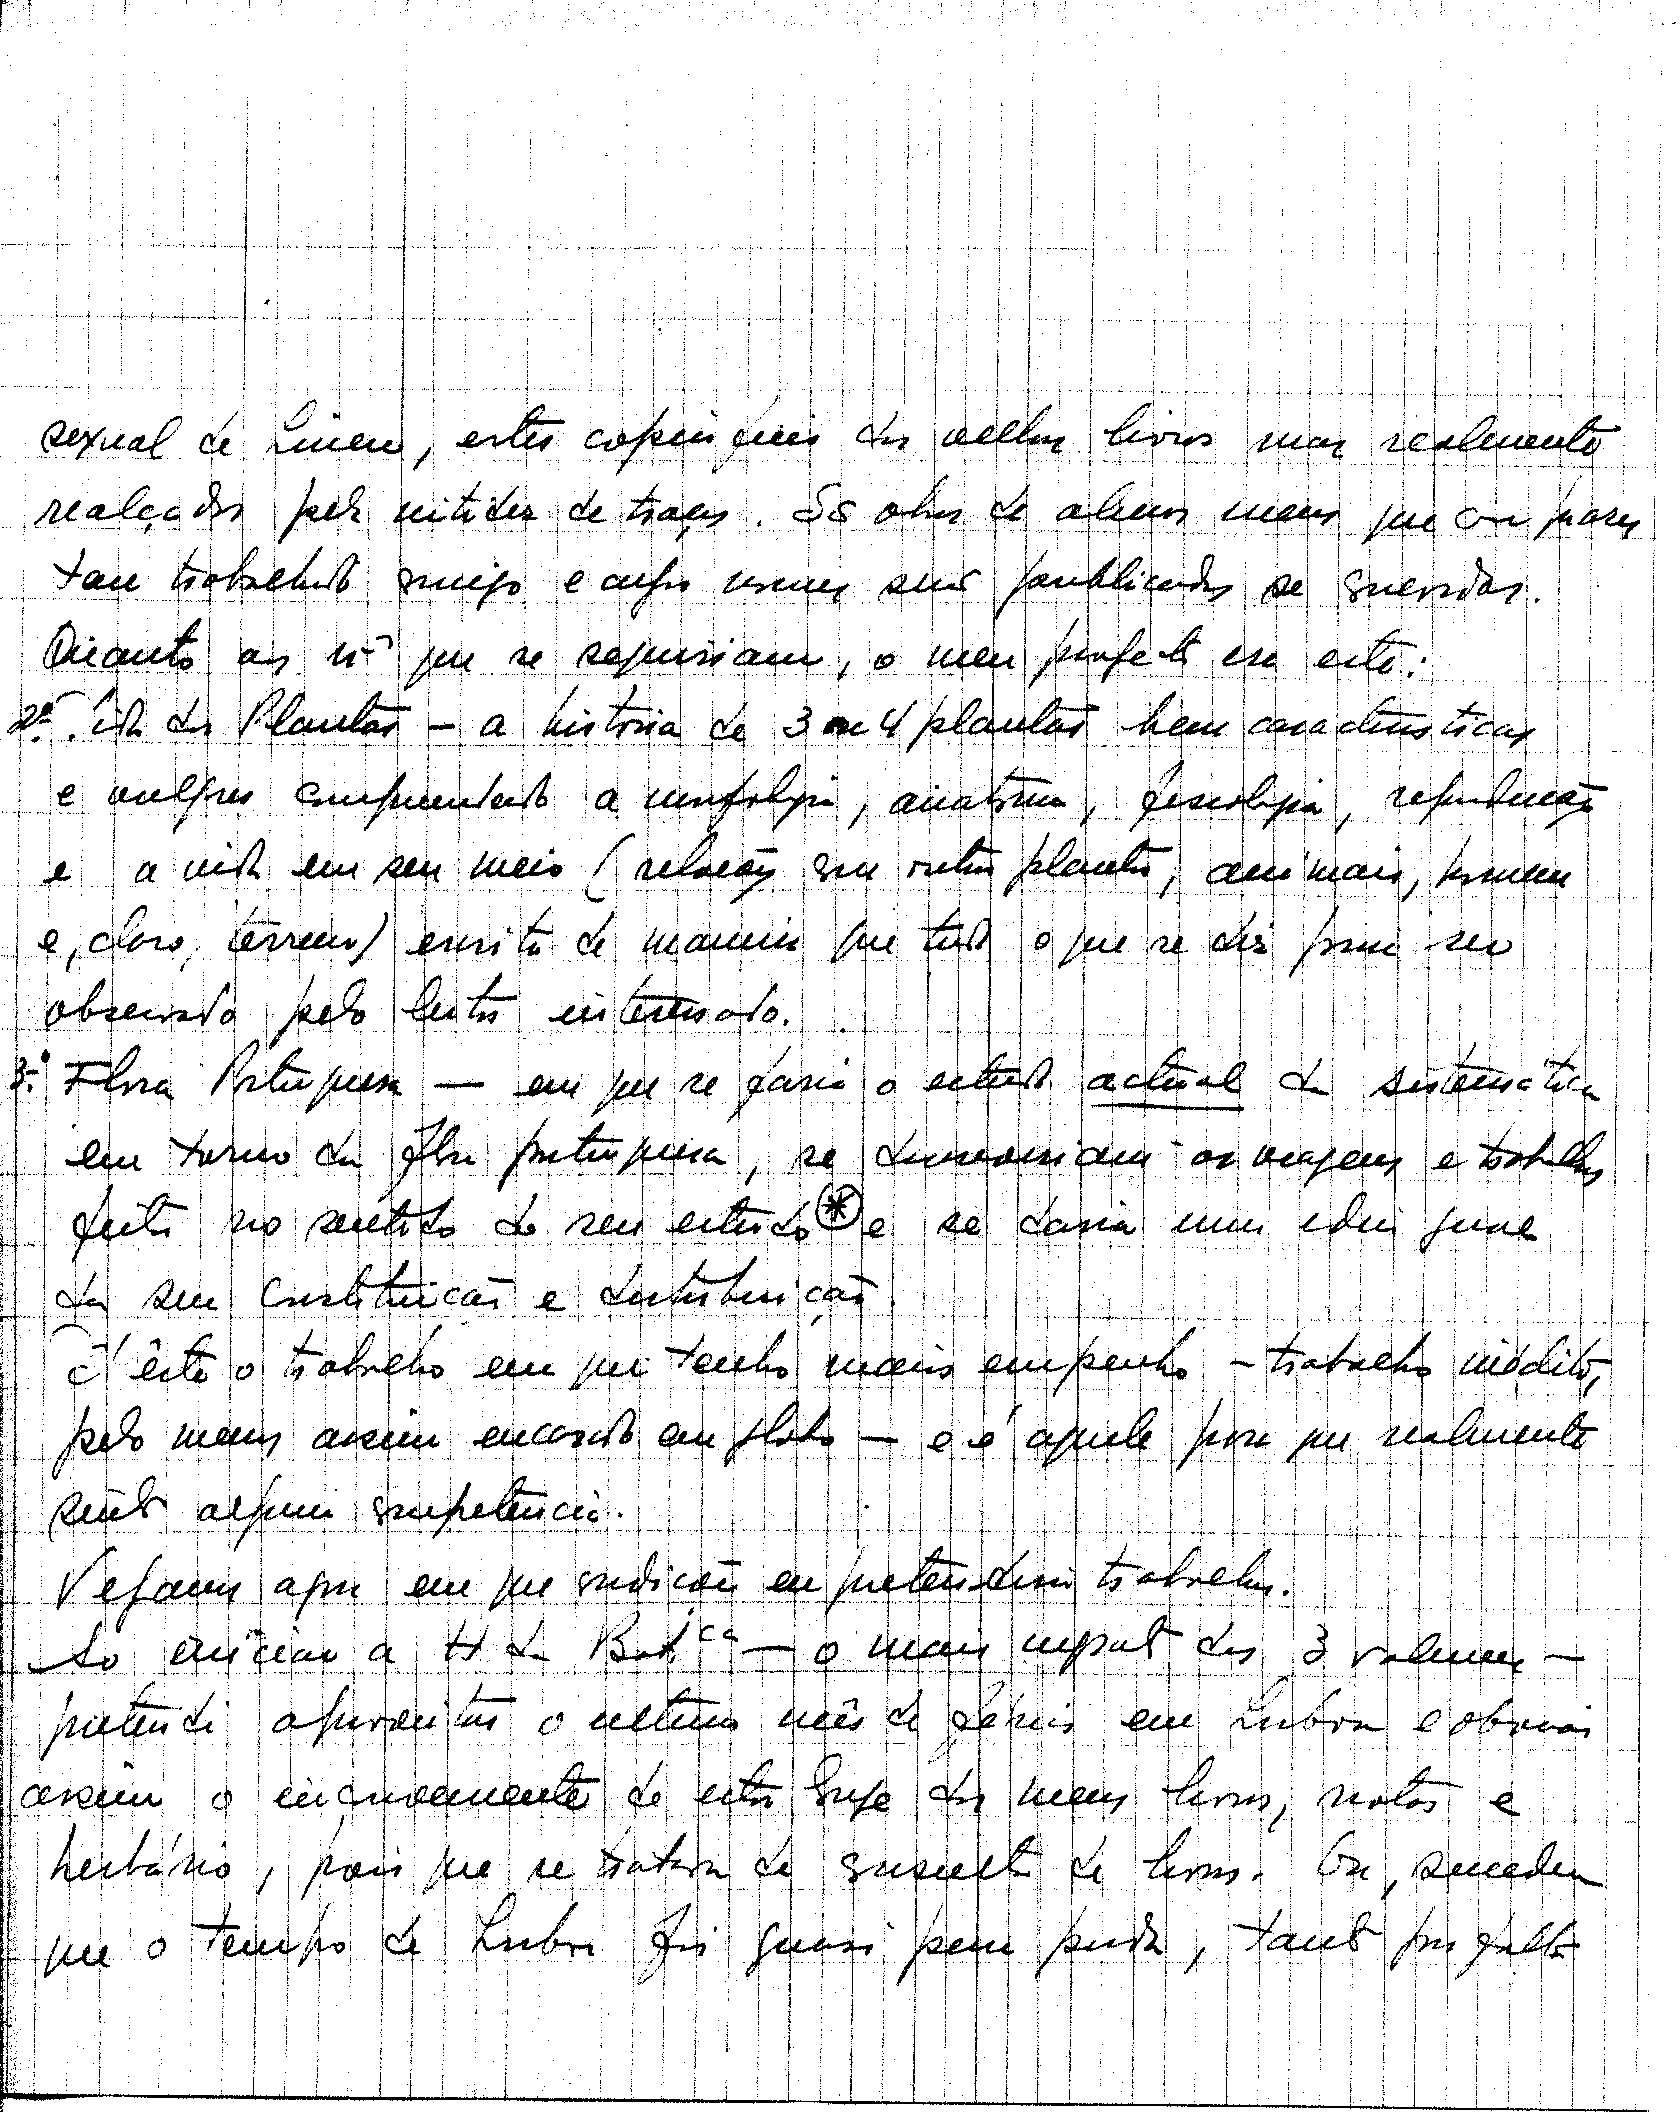 sexual de Lineu, estes copiados dos velhos livros mas realmente
realçados pela nitidez de traços. São obra de alunos meus que
tem trabalhado comigo e cujos nomes serão publicados se quiserdes.
Quanto aos nos que se seguiriam, o meu projecto era este:
2º. Vida das Plantas – a história de 3 ou 4 plantas bem características
e vulgares compreendendo a morfologia, anatomia, fisiologia, reprodução
e a vida em seu meio (relações com outras plantas, animais, homem
e, claro, terreno) escrita de maneira que tudo o que se diz possa ser
observado pelo leitor interessado.
3º. Flora Portuguesa – em que se faria o estudo actual da sistemática
em torno da flora portuguesa, se descreveriam as viagens e trabalhos
feitos no sentido do seu estudo * e se daria uma ideia geral
da sua constituição e distribuição.
É êste o trabalho em que tenho mais empenho – trabalho inédito,
pelo menos assim encarado em globo – e é aquele para que realmente
sinto alguma competência.
Vejamos agora em que condições eu pretenderia trabalhar.
Ao iniciar a H da Botca – o mais ingrato dos 3 volumes –
pretendi aproveitar o ultimo mês de férias em Lisboa e obviar
assim o inconveniente de estar longe dos meus livros, notas e
herbário, pois que se tratava de consulta de livros. Ora, sucedeu
que o tempo de Lisboa foi quasi pura perda, tanto por falta